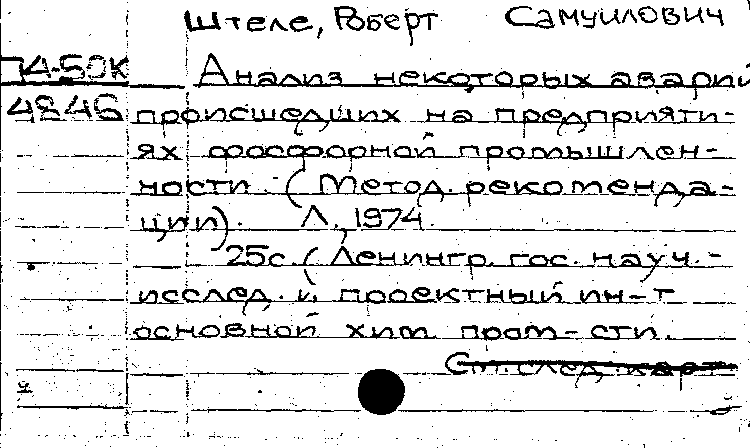 Штеле, Роберт Самуилович
74-50К Анализ некоторых аварий
4846 происшедших на предприяти-
ях фосфорной промышлен-
ности. (Метод. рекоменда-
ции). Л., 1974.
25с. (Ленингр. гос. науч.-
исслед. и проектный ин-т
основной хим. пром-сти.
См. след. карт